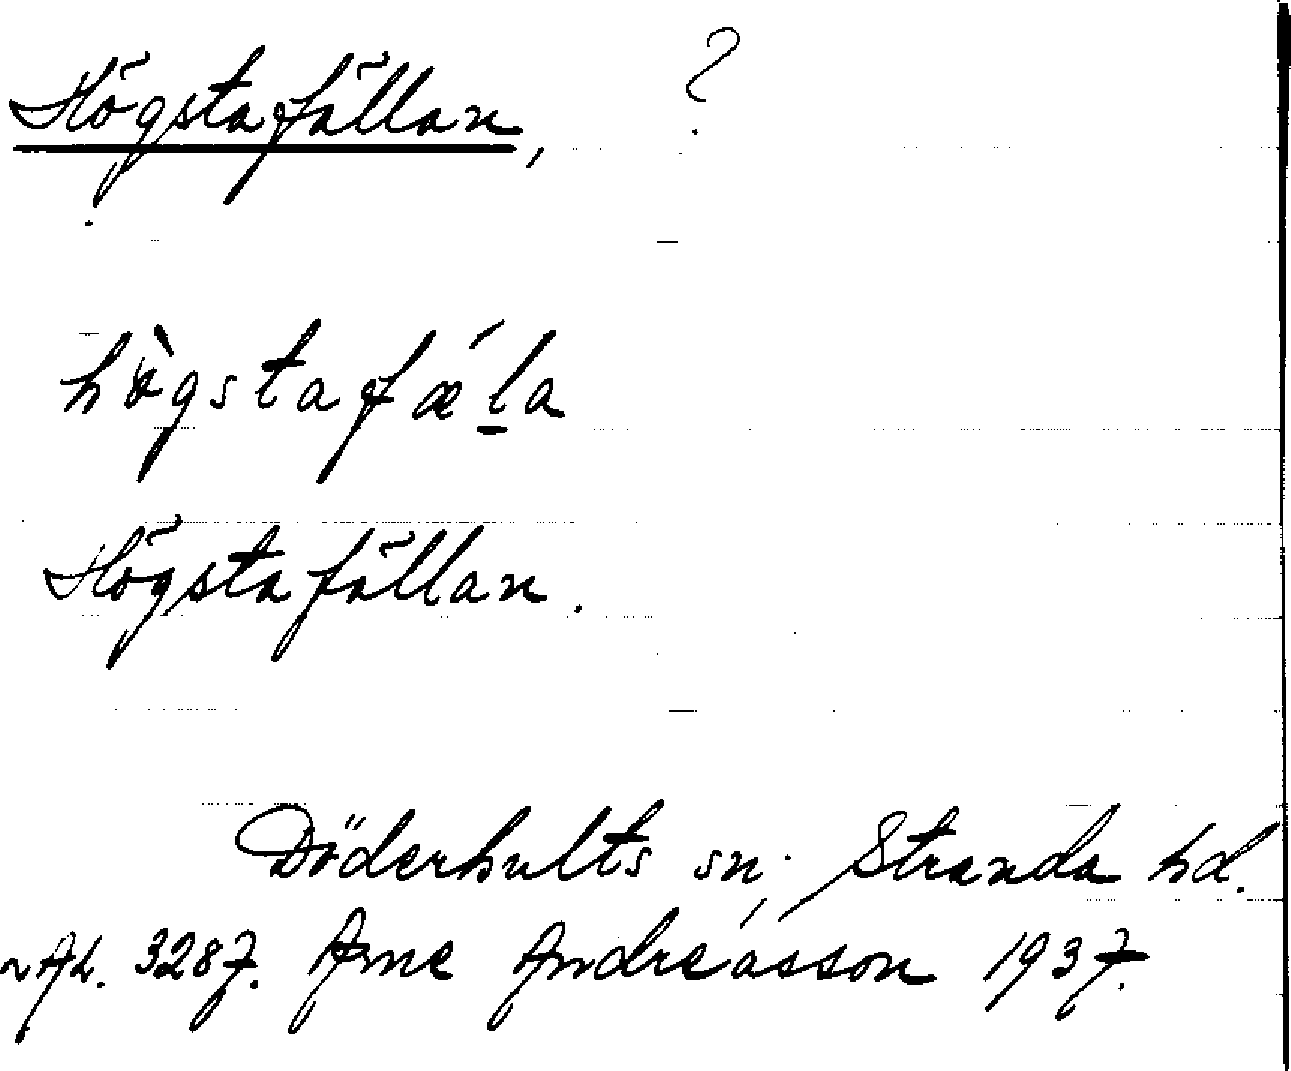 Högstafällan, ?
hògstafæ´la
Högstafällan.
Döderhults sn, Stranda hd.
Ah. 3287. Arne Andréasson 1937.